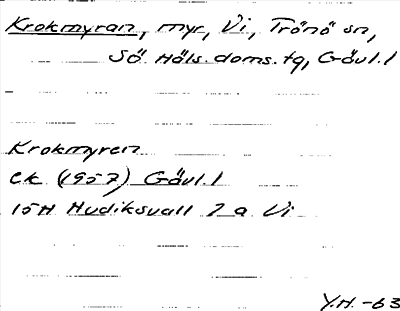 Krokmyran, myr, Vi, Trönö sn,
Sö. Häls. doms. tg, Gävl. l
Krokmyren
ek (1957) Gävl. l
15H Hudiksvall 7 a Vi
Y.H. -63